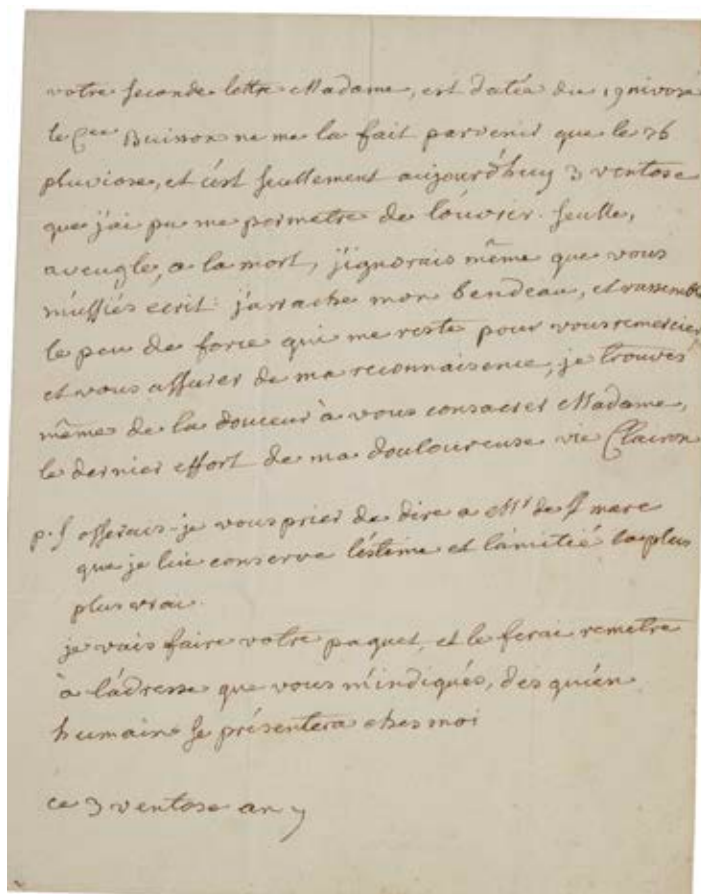 votre seconde lettre Madame, est datée du 19 nivose
le Cen Buisson ne me la fait parvenir que le 26
pluviose, et c'est seullement aujourd'huy 3 ventose
que j'ai pu me permetre de l'ouvrir. seulle,
aveugle, a la mort, j'ignorais même que vous
m'ussiés ecrit: j'arrache mon bendeau, et rassemble
le peu de force qui me reste pour vous remercier
et vous assurer de ma reconnaisence, je trouves
même de la douceur à vous consacrer Madame,
le dernier effort de ma douloureuse vie Clairon
p.s osserais-je vous prier de dire a Mr de St marc
que je lui conserve l'éstime et l'amitié la plus
plus vrai.
je vais faire votre paquet, et le ferai remetre
à l'adresse que vous m'indiqués, des qu'un
humain se présentera chés moi
ce 3 ventose an 7